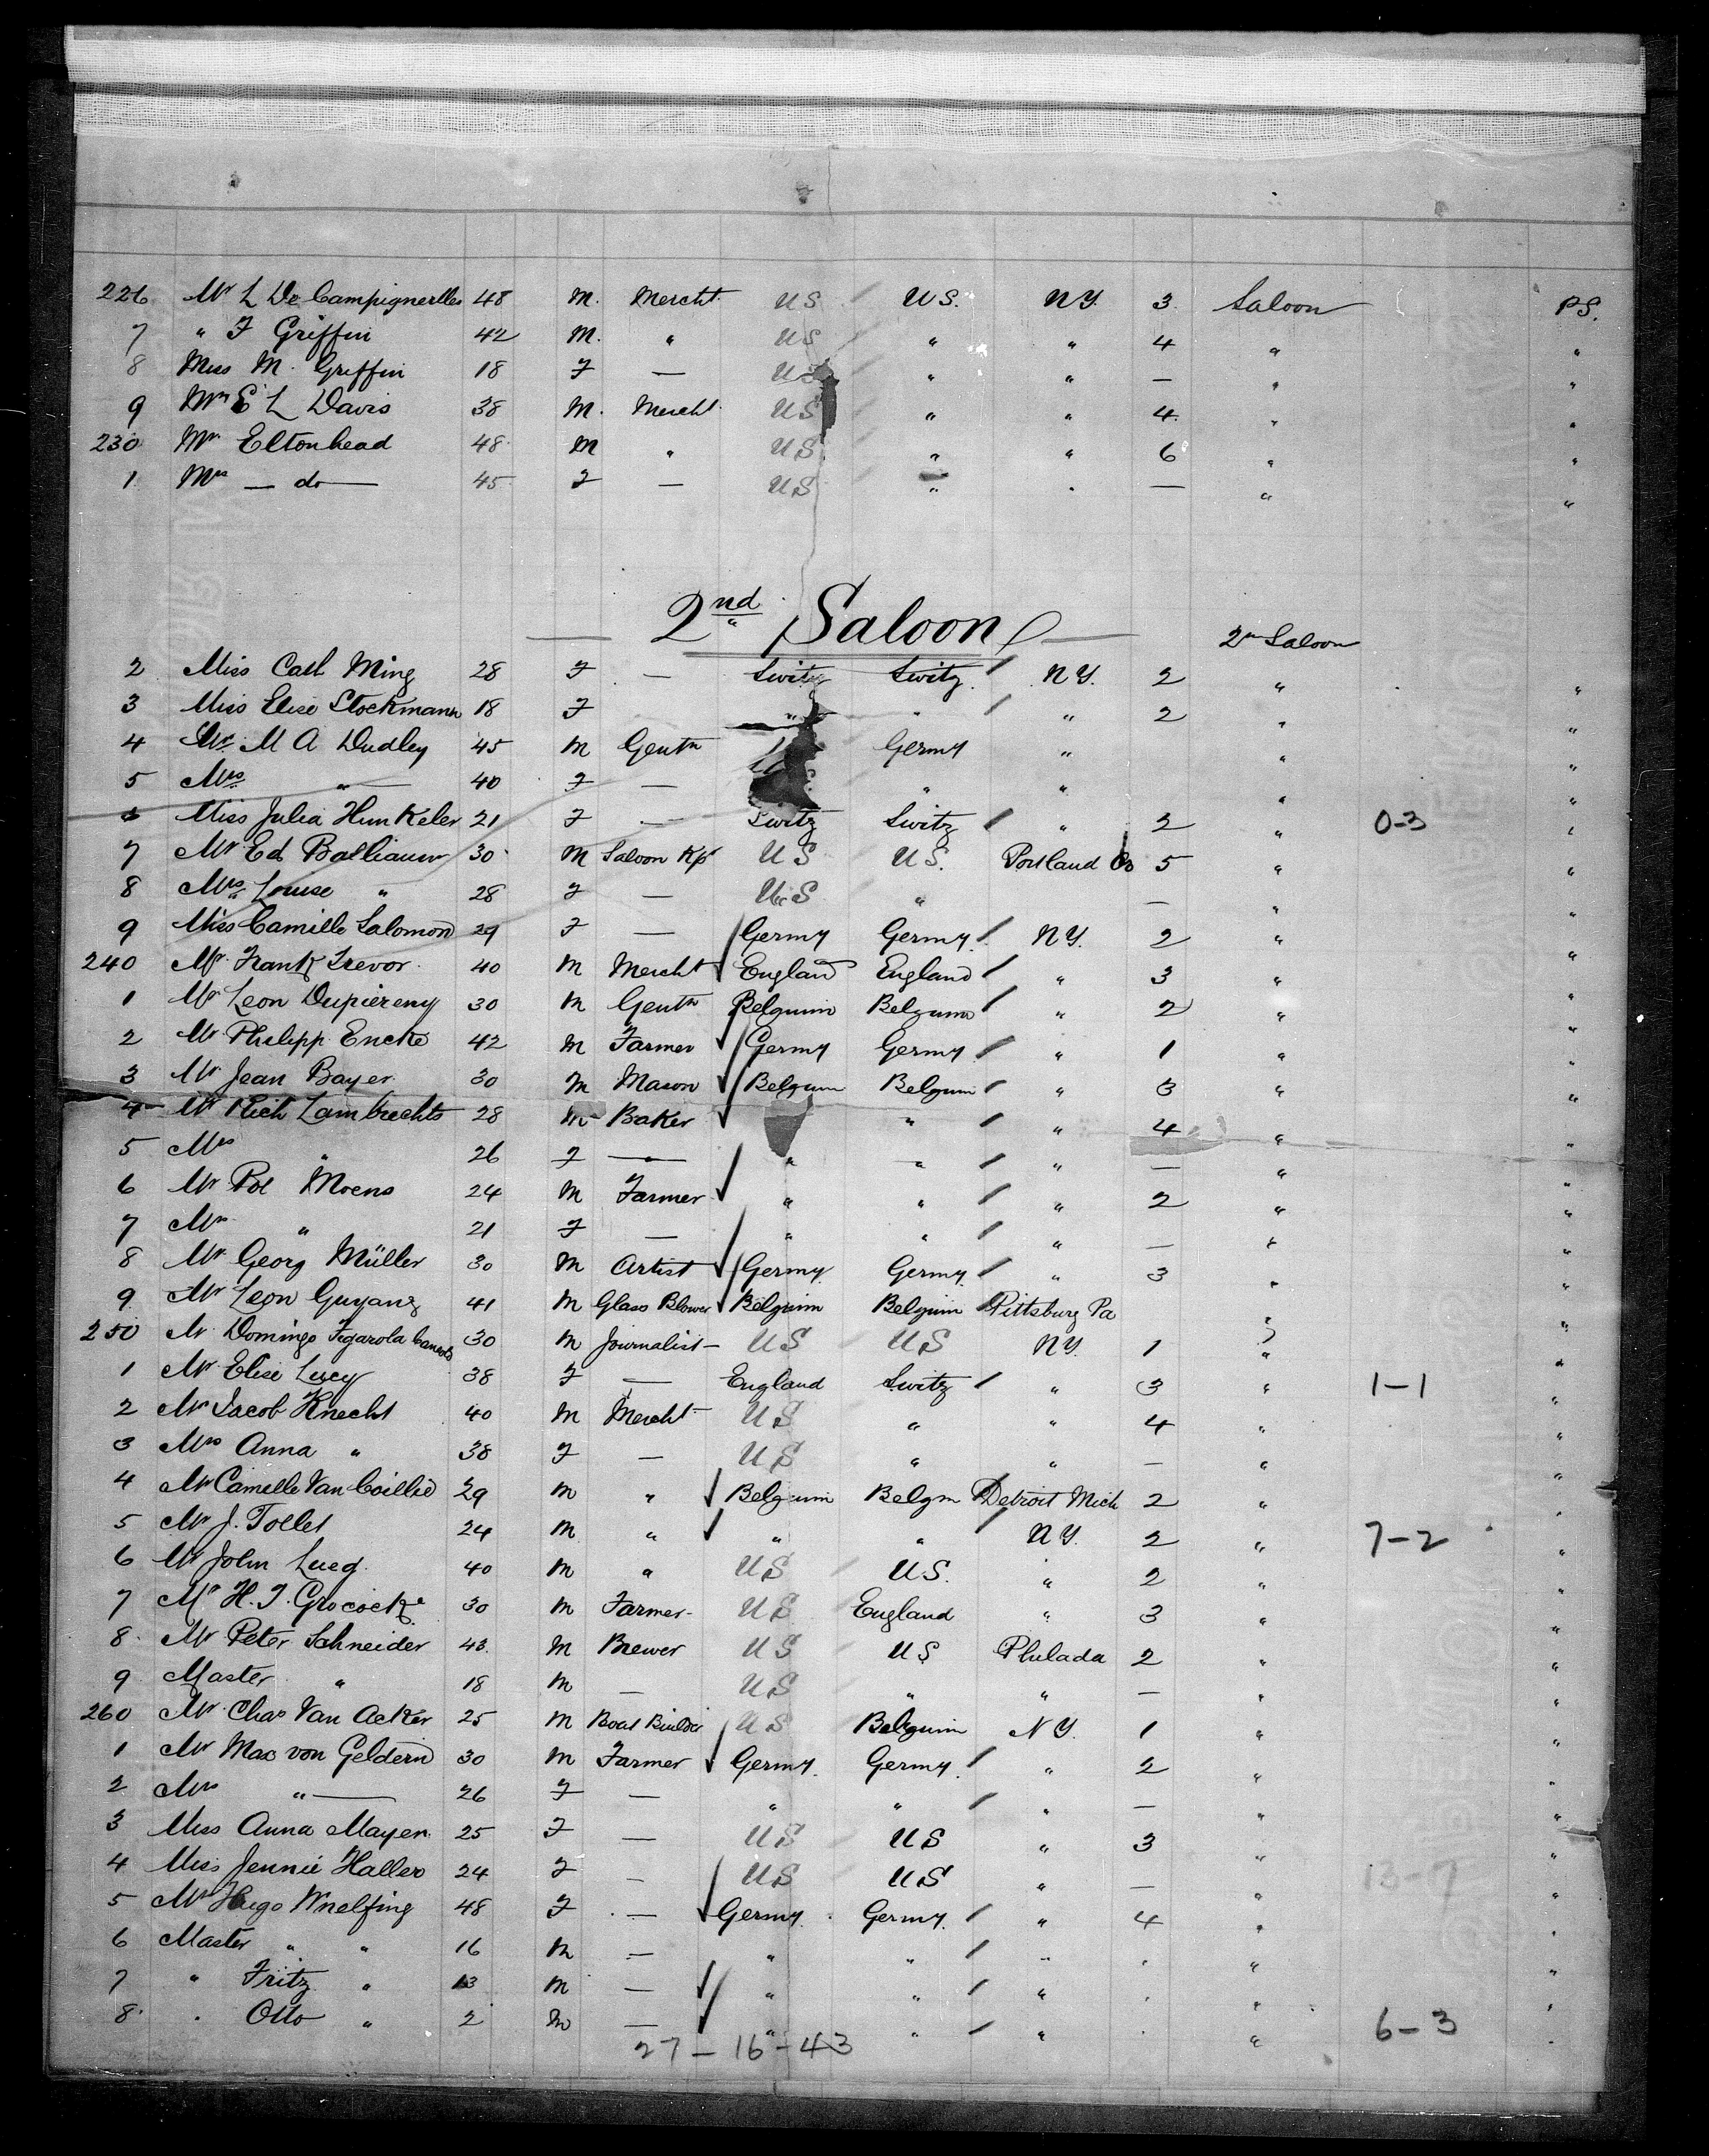 226 Mr L De Campignerlles 48 M. Mercht. US US. NY. 3 Saloon PS.
7 " F Griffin 42 M. " US " " 4 " "
8 Miss M. Griffin 18 F — US " " — " "
9 Mr E L Davis 38 M. Mercht. US " " 4. " "
230 Mr Eltonhead 48 M " US " " 6 " "
1 Mrs — do — 45 F — US " " — " "
2nd Saloon
2nd Saloon
2 Miss Cath Ming 28 F — Switz Switz. NY. 2 " "
3 Miss Elise Stockmann 18 F " " " 2 " "
4 Mr. M A Dudley 45 M Gentn Germy " " "
5 Mrs " 40 F — " " " "
6 Miss Julia Hunkeler 21 F — Switz Switz " 2 " 0-3 "
7 Mr Ed Balliauw 30 M Saloon Kpr US US. Portland 5 " "
8 Mrs Louise " 28 F — US " — " "
9 Miss Camille Salomon 29 F — Germy Germy. NY. 2 " "
240 Mr. Frank Trevor 40 M Mercht England England " 3 " "
1 Mr Leon Dupiereny 30 M Gentn Belguim Belguim " 2 " "
2 Mr Philipp Encke 42 M Farmer Germy Germy " 1 " "
3 Mr Jean Bayer 30 M Mason Belgum Belgum " 3 " "
4 Mr Rich Lambrechts 28 M Baker " " 4 " "
5 Mrs " 26 F — " " " — " "
6 Mr Pol Moens 24 M Farmer " " " 2 " "
7 Mrs " 21 F — " " " — " "
8 Mr Georg Müller 30 M Artist Germy Germy " 3 " "
9 Mr Leon Guyang 41 M Glass Blower Belguim Belguim Pittsburg Pa " "
250 Mr Domingo Figarola 30 M Journalist US US NY. 1 " "
1 Mr Elise Lucy 38 F — England Switz " 3 " 1-1 "
2 Mr Jacob Knecht 40 M Mercht US " " 4 " "
3 Mrs Anna " 38 F — US " " — " "
4 Mr Camille Van Coillie 29 M " Belguim Belgm Detroit Mich 2 " "
5 Mr J. Tollet 24 M " " " NY. 2 " 7-2 "
6 Mr John Lueg 40 M " US US. " 2 " "
7 Mr H. J. Grocock 30 M Farmer US England " 3 " "
8 Mr Peter Schneider 43 M Brewer US US Philada 2 " "
9 Master " 18 M — US " " — " "
260 Mr Chas Van Acker 25 M Boat Builder US Belguim NY. 1 " "
1 Mr Max von Geldern 30 M Farmer Germy. Germy. " 2 " "
2 Mrs " 26 F — " " " — " "
3 Miss Anna Mayer 25 F — US US " 3 " "
4 Miss Jennie Haller 24 F — US US " — " 13-7 "
5 Mr Hugo Wnelfing 48 F — Germy. Germy. " 4 " "
6 Master " " 16 M — " " " " " "
7 " Fritz " 13 M — " " " " " "
8 " Otto " 2 M — " " " " " 6-3 "
27 — 16 - 43